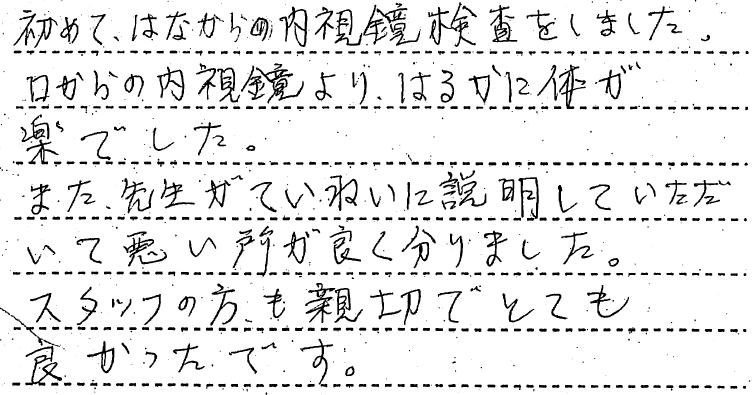 初めて、はなからの内視鏡検査をしました。
口からの内視鏡より、はるかに体が
楽でした。
また、先生がていねいに説明していただ
いて悪い所が良く分りました。
スタッフの方も親切でとても
良かったです。